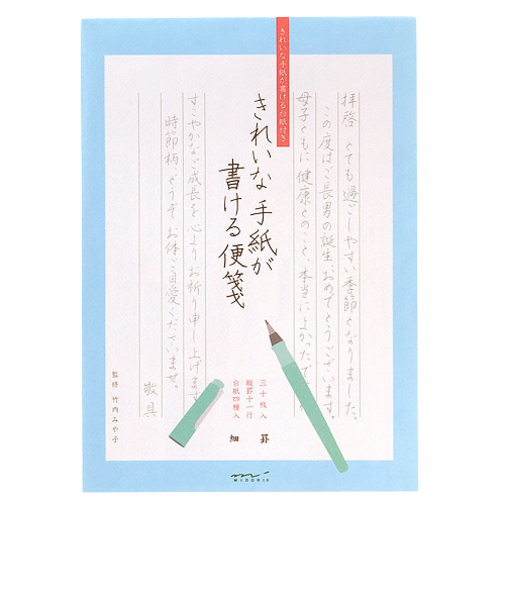 きれいな手紙が書ける台紙付き
拝啓　とても過ごしやすい季節となりました。
この度はご長男の誕生、おめでとうございます。
母子ともに健康とのこと、本当によかったで
きれいな手紙が
書ける便箋
すこやかなご成長を心よりお祈り申し上げます
時節柄、どうぞお体ご自愛くださいませ。
敬具
三十枚入
縦罫十一行
台紙四種入
細罫
監修　竹内みや子
MIDORI